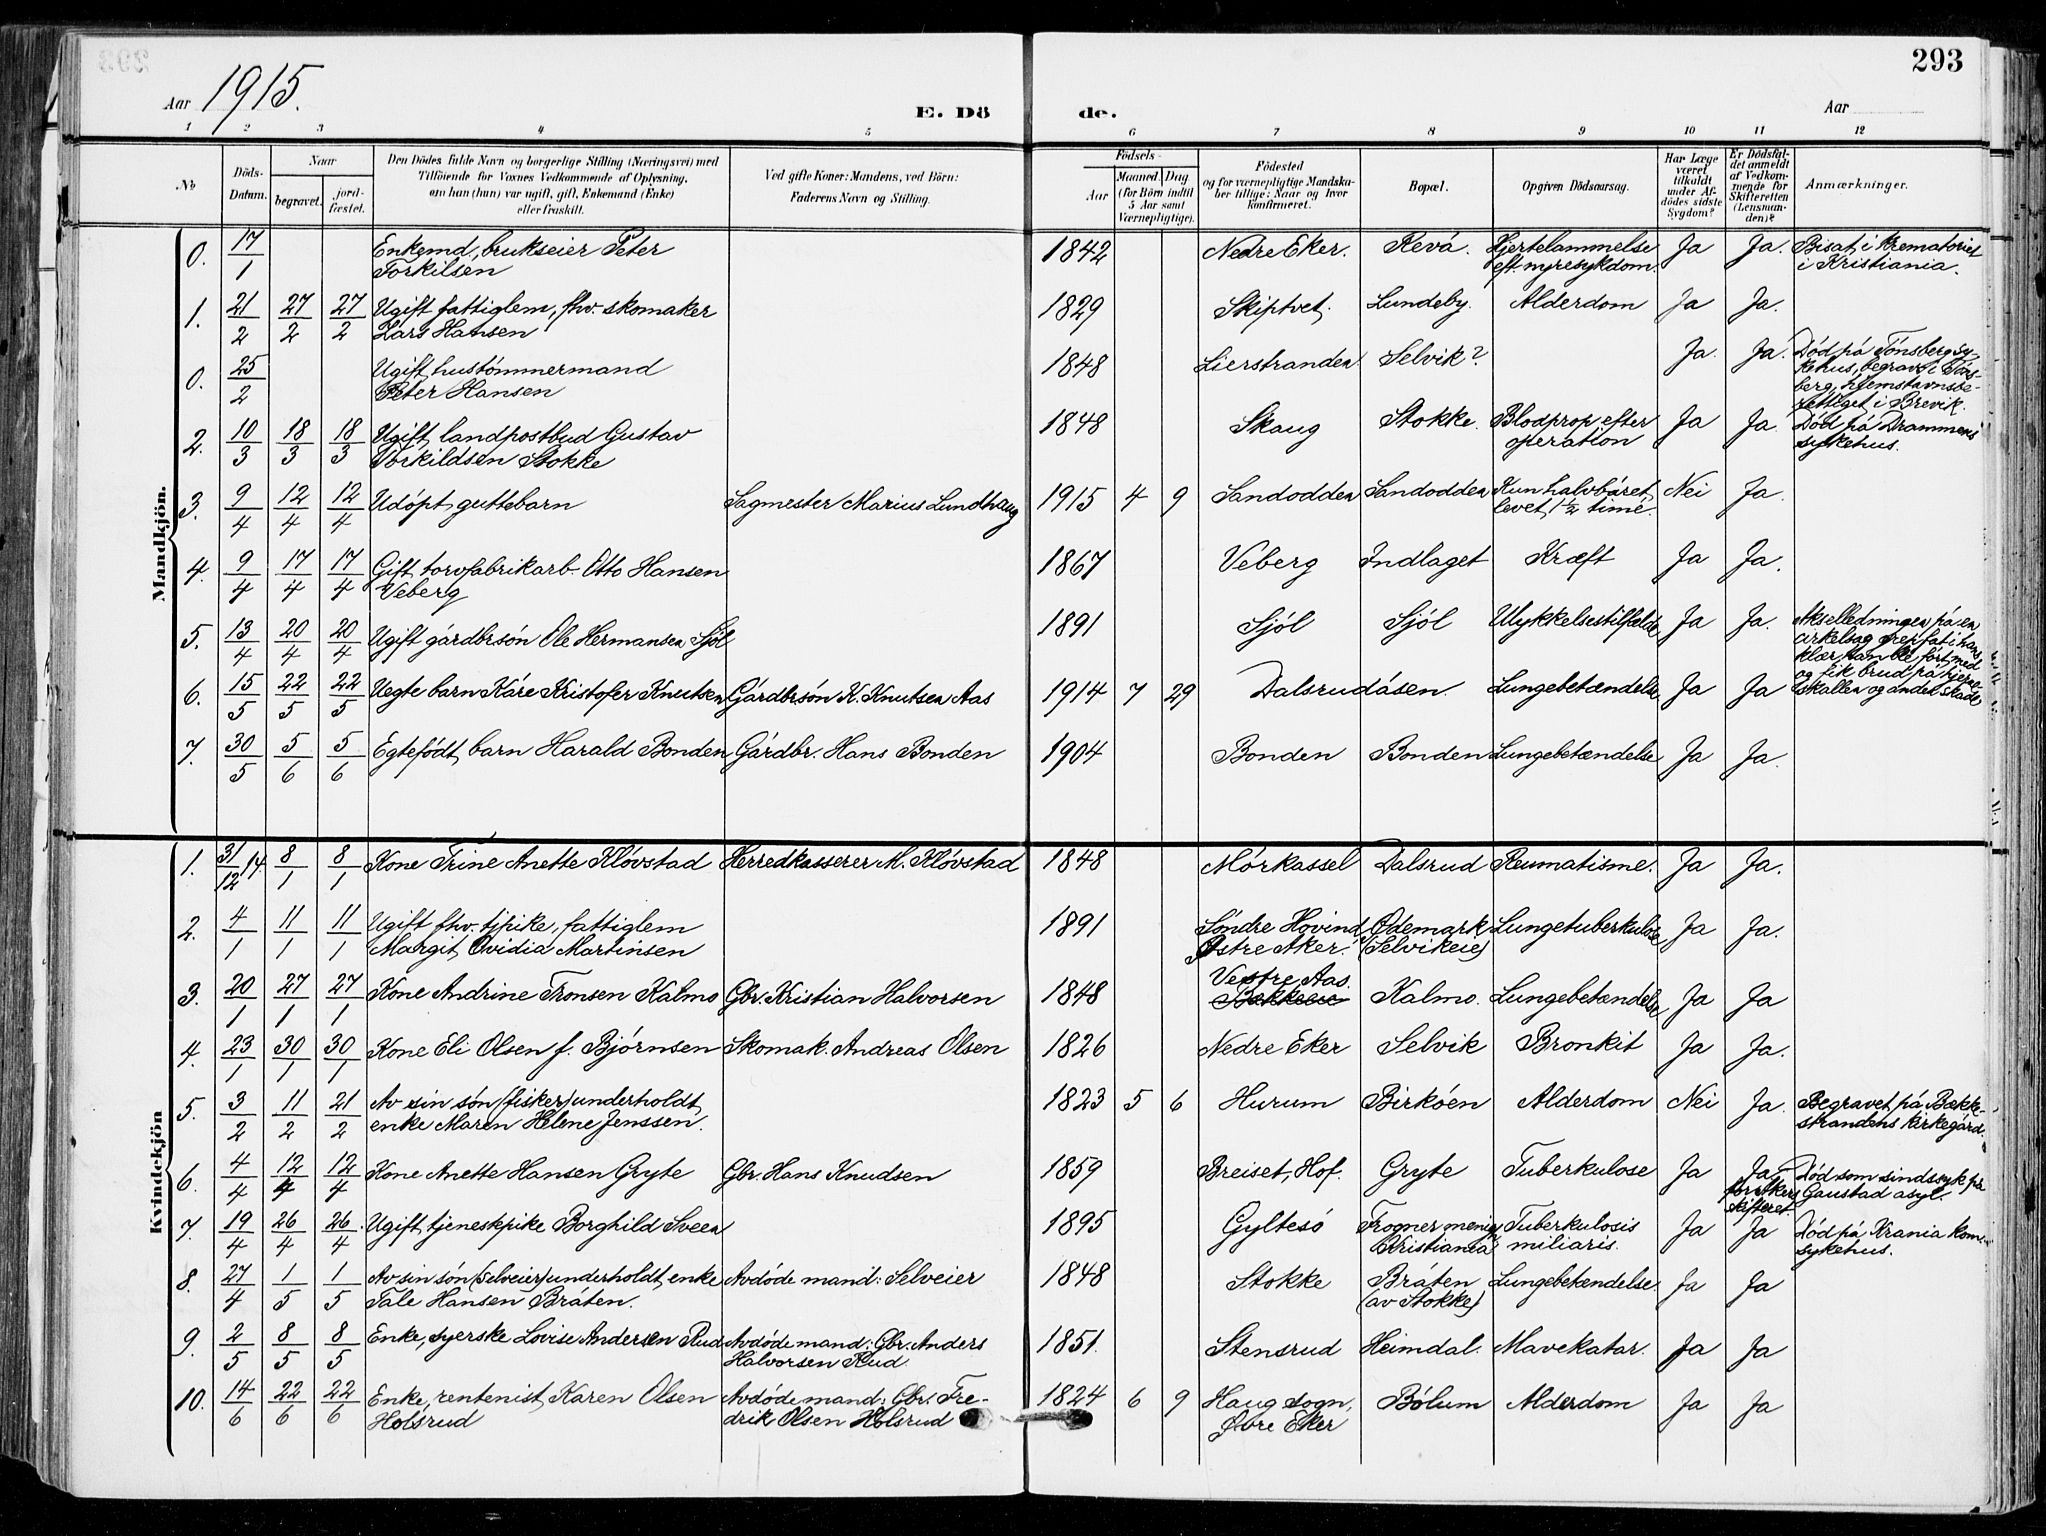 293
Aar 1915.
E. Dö de.
Aar
1 2 3 4 5 6 7 8 9 10 11 12
No
Döds-Datum.
Naar
begravet.
jord-fæstet.
Den Dödes fulde Navn og borgerlige Stilling (Næringsvei) med
Tilföiende for Voxnes Vedkommende af Oplysning,
om han (hun) var ugift, gift, Enkemand (Enke)
eller fraskilt.
Ved gifte Koner: Mandens, ved Börn:
Faderens Navn og Stilling.
Födsels-
Aar
Maaned. Dag
(for Börn indtil
5 Aar samt
Værnepligtige).
Födested
og for værnepligtige Mandska-
ber tillige: Naar og hvor
konfirmeret.
Bopæl.
Opgiven Dödsaarsag.
Har Læge
været
tilkaldt
under Af-
dödes sidste
Sygdom?
Er Dödsfal-
det anmeldt
af Vedkom-
mende for
Skifteretten
(Lensman-
den)?
Anmærkninger.
Mandkjön.
0. 17/1 Enkemd, brukseier Peter 1842 Nedre Eker. Revá. Hjertelammelse Ja Ja. Bisat i krematoriet
Torkilsen eft. nyresykdom. i Kristiania.
1. 21/2 27/2 27/2 Ugift fattiglem, fhv. skomaker 1829 Skiptvet. Lundeby. Alderdom Ja Ja.
Lars Hansen
0. 25/2 Ugift hustömmermand 1848 Lierstranden Selvik? Ja. Ja. Död på Tönsberg sy-
Peter Hansen kehus, begravet i Töns-
berg, hjemstavnsbe-
rettiget i Brevik.
2. 10/3 18/3 18/3 Ugift landpostbud Gustav 1848 Skaug Stokke. Blodprop efter Ja Ja. Död på Drammens
Torkildsen Stokke operation sykehus.
3. 9/4 12/4 12/4 Udöpt guttebarn Sagmester Marius Lundhaug 1915 4 9 Sandodden Sandodden Kun halvbåret, Nei Ja.
levet 1½ time.
4. 9/4 17/4 17/4 Gift torvfabrikarb. Otto Hansen 1867 Veberg Indlaget Kræft Ja Ja.
Veberg
5. 13/4 20/4 20/4 Ugift gårdbrsön Ole Hermansen Sjöl 1891 Sjöl Sjöl Ulykkelsestilfælde Ja Ja. Akselledningen på en
cirkelsag grep fat i hans
klær, han ble fört med
og fik brud på hjerne-
skallen og andel skade
6. 15/5 22/5 22/5 Uegte barn Kåre Kristofer Knutsen Gårdbrsön K. Knutsen Aas 1914 7 29 Dalsrudåsen. Lungebetændelse Ja Ja
7. 30/5 5/6 5/6 Egtefödt barn Harald Bonden Gårdbr. Hans Bonden 1904 Bonden Bonden Lungebetændelse Ja Ja.
Kvindekjön
1. 31/12 14. 8/1 8/1 Kone Trine Anette Klövstad Herredkasserer M. Klövstad 1848 Mörkassel Dalsrud Reumatisme. Ja Ja.
2. 4/1 11/1 11/1 Ugift fhv. tjpike, fattiglem 1891 Söndre Hovind Ödemark Lungetuberkulose Ja Ja.
Margit Ovidia Martinsen Östre Aker. (Selvikeie)
3. 20/1 27/1 27/1 Kone Andrine Tronsen Kalmo Gbr. Kristian Halvorsen 1848 Vestre Aas. Kalmo. Lungebetændelse Ja Ja
4. 23/1 30/1 30/1 Kone Eli Olsen f. Björnsen Skomak. Andreas Olsen 1826 Nedre Eker Selvik Bronkit Ja Ja.
5. 3/2 11/2 21/2 Av sin sön (fisker) underholdt 1823 5 6 Hurum Birköen Alderdom Nei Ja. Begravet på Bække-
enke Maren Helene Jenssen. strandens kirkegård.
6. 4/4 12/4 12/4 Kone Anette Hansen Gryte Gbr. Hans Knudsen 1859 Breiset, Hof. Gryte Tuberkulose Ja Ja, Död som sindssyk på
for Akers Gaustad asyl.
skifteret.
7. 19/4 26/4 26/4 Ugift tjenestpike Borghild Sveen 1895 Gyltesö Frogner menig. Tuberkulosis Ja Ja Död på Krania kom.
Kristiania miliaris. sykehus.
8. 27/4 1/5 1/5 Av sin sön (selveier) underholdt enke Avdöde mand: Selveier 1848 Stokke Bråten Lungebetændelse. Ja Ja
Tale Hansen Bråten. (av Stokke)
9. 2/5 8/5 8/5 Enke, syerske Lovise Andersen Rud Avdöde mand: Gbr. Anders 1851. Stensrud Heimdal. Mavekatar. Ja Ja
Halvorsen Rud.
10. 14/6 22/6 22/6 Enke, rentenist Karen Olsen Avdöde mand: Gbr. Fre- 1824 6 9 Haug sogn, Bölum Alderdom Ja Ja
Holsrud drik Olsen Holsrud Øvre Eker